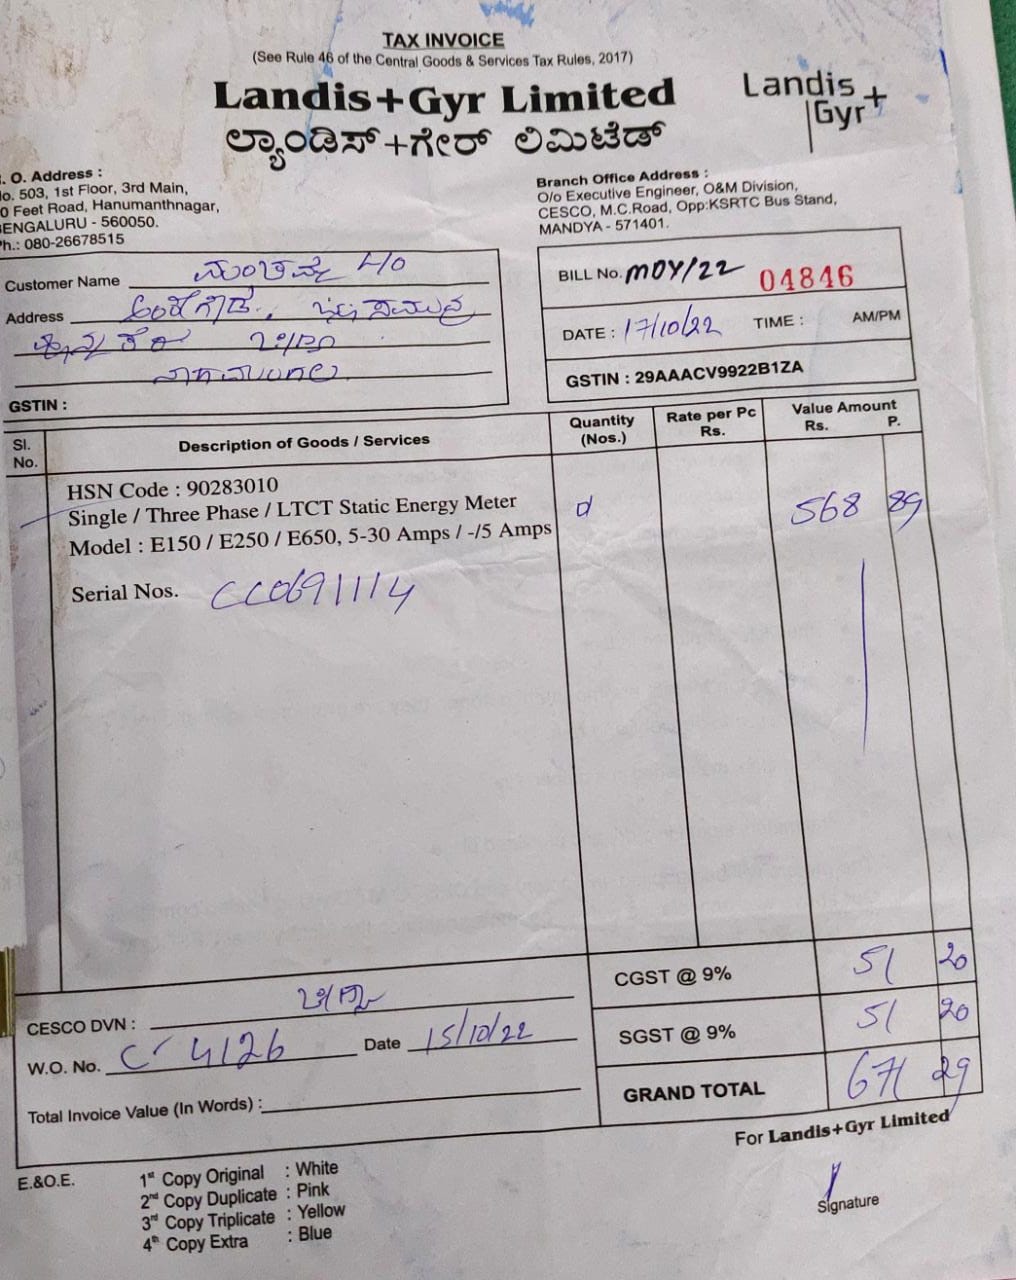 TAX INVOICE
(See Rule 46 of the Central Goods & Services Tax Rules, 2017)
Landis+Gyr Limited
ಲ್ಯಾಂಡಿಸ್+ಗೇರ್ ಲಿಮಿಟೆಡ್
Landis
Gyr+
. O. Address :
No. 503, 1st Floor, 3rd Main,
0 Feet Road, Hanumanthnagar,
BENGALURU - 560050.
Ph.: 080-26678515
Branch Office Address :
O/o Executive Engineer, O&M Division,
CESCO, M.C.Road, Opp:KSRTC Bus Stand,
MANDYA - 571401.
Customer Name
Address
GSTIN :
BILL No. MDY/22 04846
DATE : 17/10/22 TIME : AM/PM
GSTIN : 29AAACV9922B1ZA
Sl. No. Description of Goods / Services Quantity (Nos.) Rate per Pc Rs. Value Amount Rs. P.
HSN Code : 90283010
Single / Three Phase / LTCT Static Energy Meter 568 89
Model : E150 / E250 / E650, 5-30 Amps / -/5 Amps
Serial Nos. CC0691114
CGST @ 9% 51 20
SGST @ 9% 51 20
GRAND TOTAL 671 29
CESCO DVN :
W.O. No. 4126 Date 15/10/22
Total Invoice Value (In Words) :
For Landis+Gyr Limited
E.&O.E.
1st Copy Original : White
2nd Copy Duplicate : Pink
3rd Copy Triplicate : Yellow
4th Copy Extra : Blue
Signature